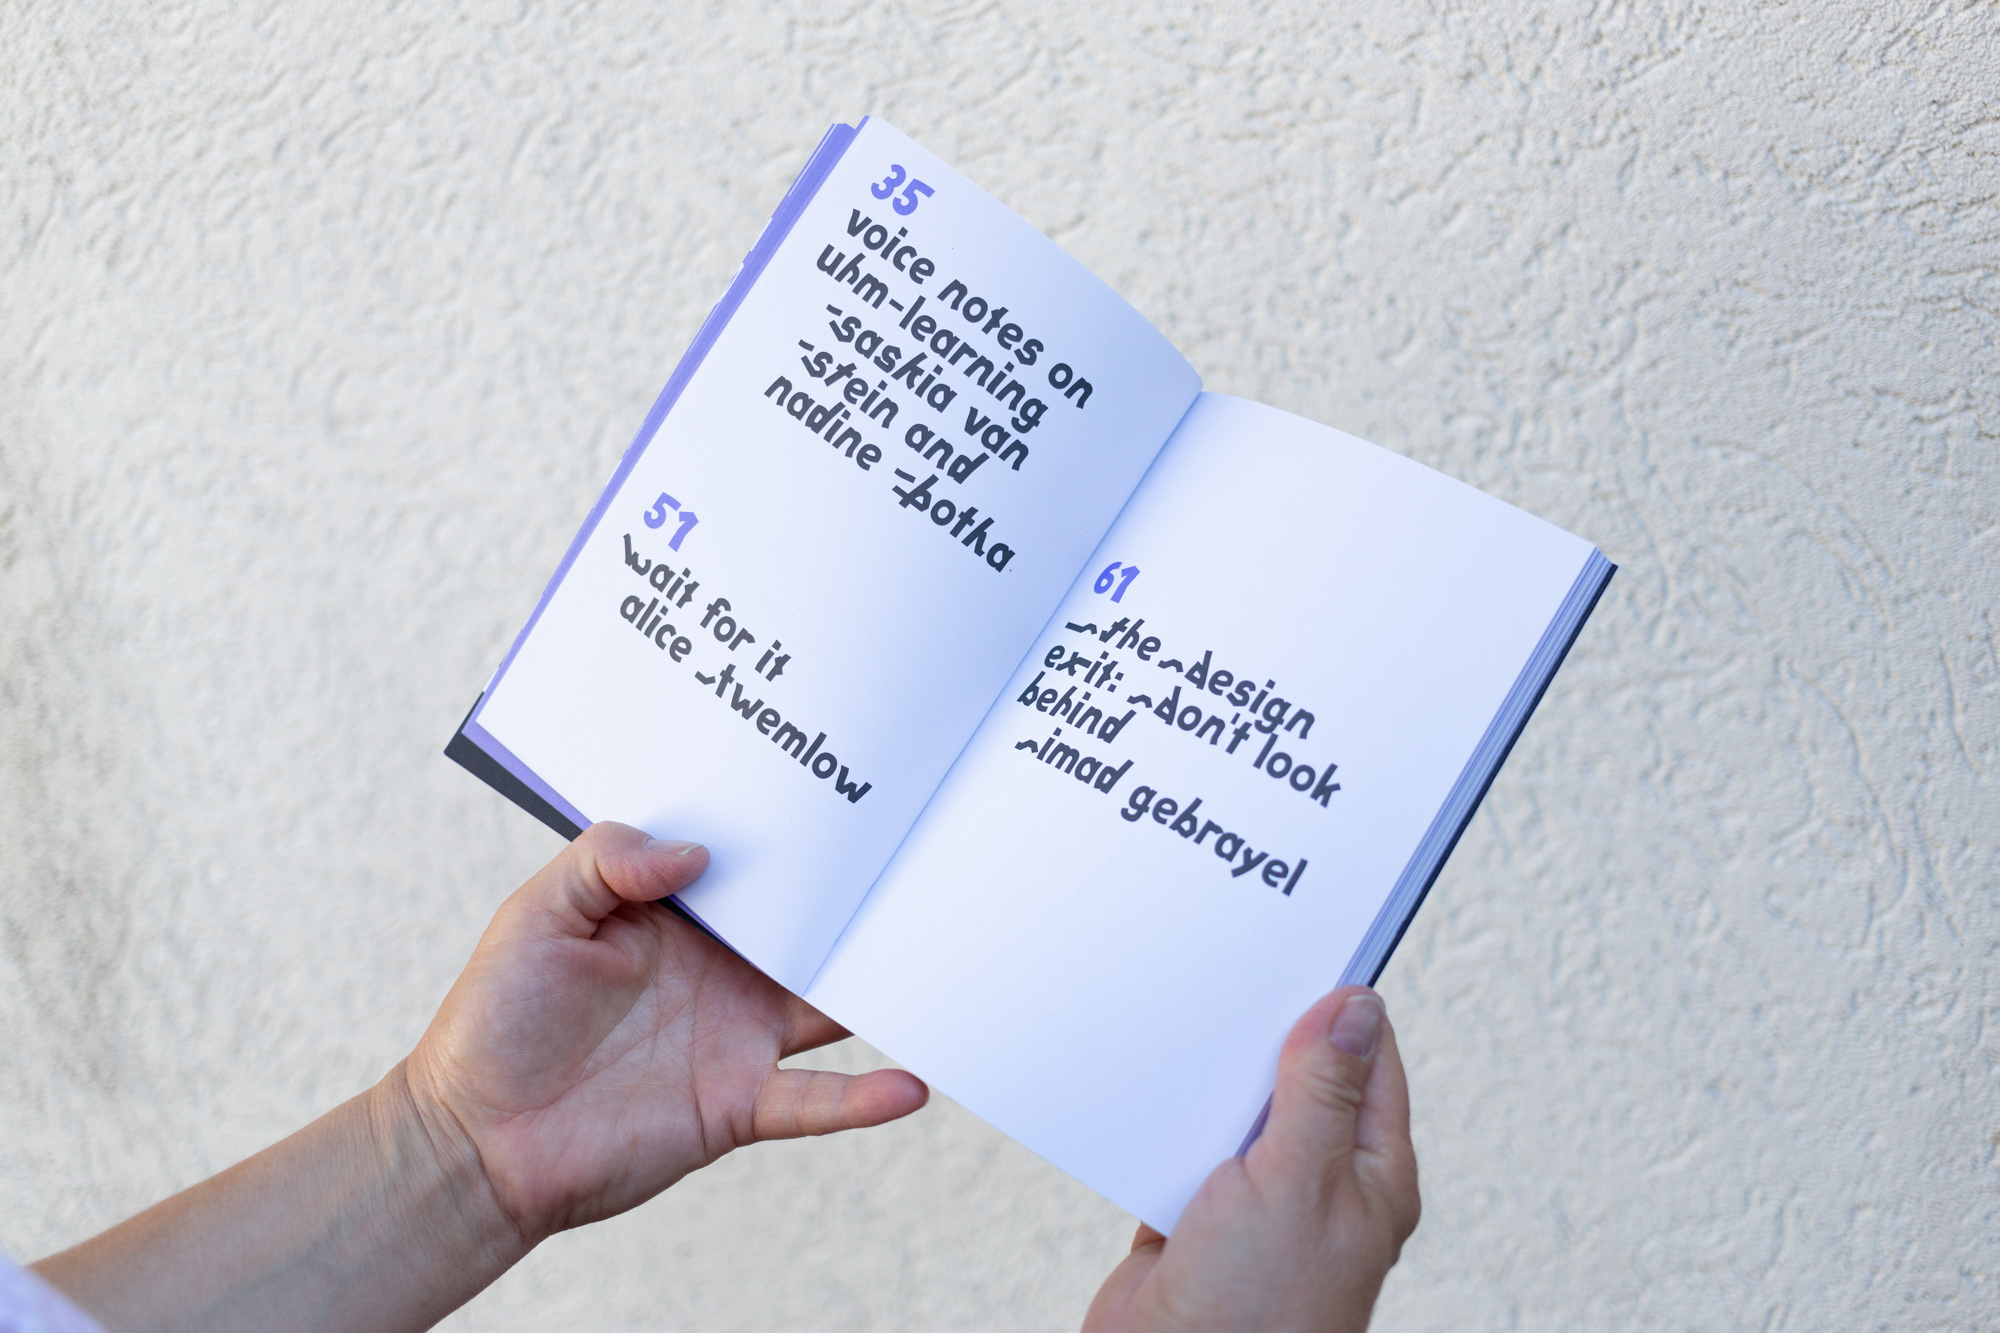 35
voice notes on
uhm-learning
saskia van
stein and
nadine botha
51
wait for it
alice twemlow
61
the design
exit: don't look
behind
imad gebrayel